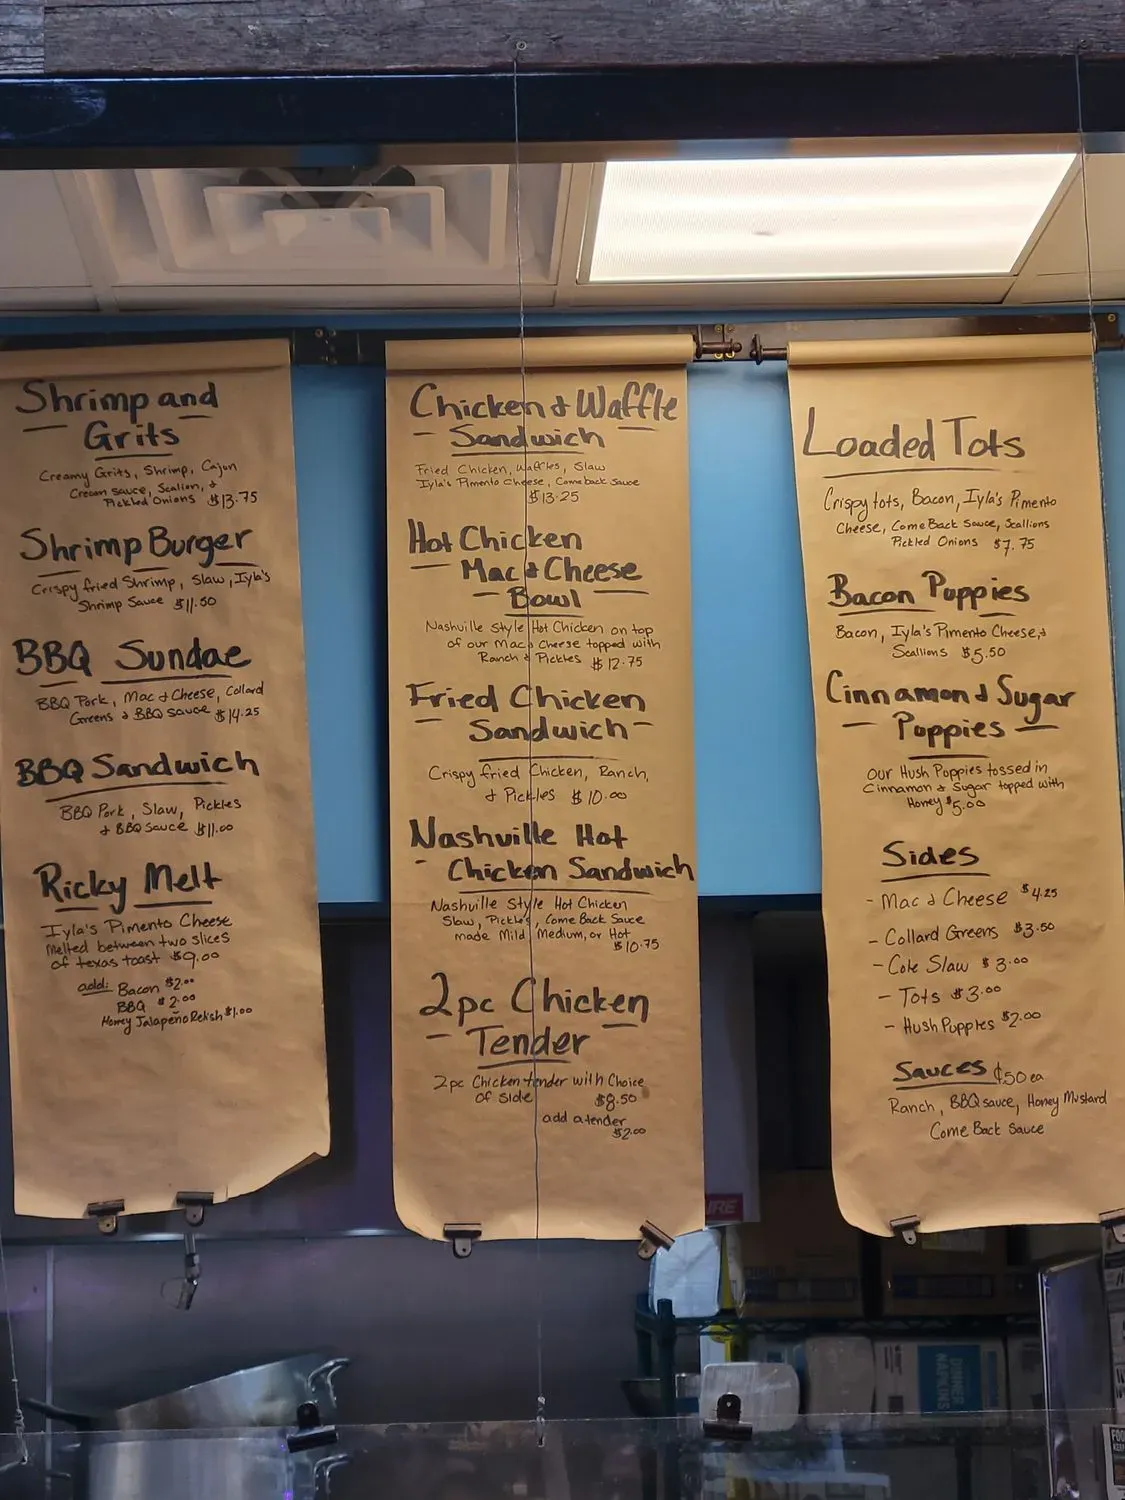 Shrimp and
Grits
Creamy Grits, Shrimp, Cajun
Cream sauce, Scallion, &
Pickled Onions $13.75
Shrimp Burger
Crispy fried Shrimp, Slaw, Iyla's
Shrimp Sauce $11.50
BBQ Sundae
BBQ Pork, Mac & Cheese, Collard
Greens & BBQ sauce $14.25
BBQ Sandwich
BBQ Pork, Slaw, Pickles
& BBQ sauce $11.00
Ricky Melt
Iyla's Pimento Cheese
Melted between two slices
of texas toast $9.00
add: Bacon $2.00
BBQ $2.00
Honey Jalapeño Relish $1.00
Chicken & Waffle
Sandwich
Fried Chicken, Waffles, Slaw
Iyla's Pimento Cheese, Comeback Sauce
$13.25
Hot Chicken
Mac & Cheese
Bowl
Nashville Style Hot Chicken on top
of our Mac & Cheese topped with
Ranch & Pickles $12.75
Fried Chicken
Sandwich
Crispy fried Chicken, Ranch,
& Pickles $10.00
Nashville Hot
Chicken Sandwich
Nashville Style Hot Chicken
Slaw, Pickles, Come Back Sauce
made Mild, Medium, or Hot
$10.75
2pc Chicken
Tender
2pc Chicken tender with Choice
of side $8.50
add a tender
$2.00
Loaded Tots
Crispy tots, Bacon, Iyla's Pimento
Cheese, Come Back Sauce, Scallions
Pickled Onions $7.75
Bacon Puppies
Bacon, Iyla's Pimento Cheese, &
Scallions $5.50
Cinnamon & Sugar
Puppies
Our Hush Puppies tossed in
Cinnamon & Sugar topped with
Honey $5.00
Sides
- Mac & Cheese $4.25
- Collard Greens $3.50
- Cole Slaw $3.00
- Tots $3.00
- Hush Puppies $2.00
Sauces ¢50 ea
Ranch, BBQ sauce, Honey Mustard
Come Back Sauce
DINNER
NAPKINS